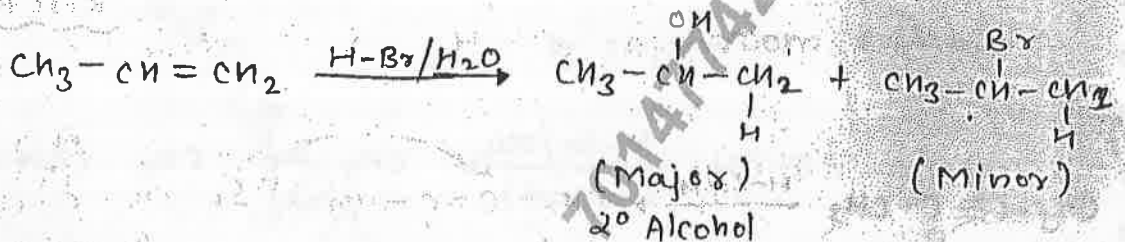 CH3 - CH = CH2 H-Br/H2O CH3 - CH - CH2 + CH3 - CH - CH2
OH Br
H H
(Major) (Minor)
2° Alcohol